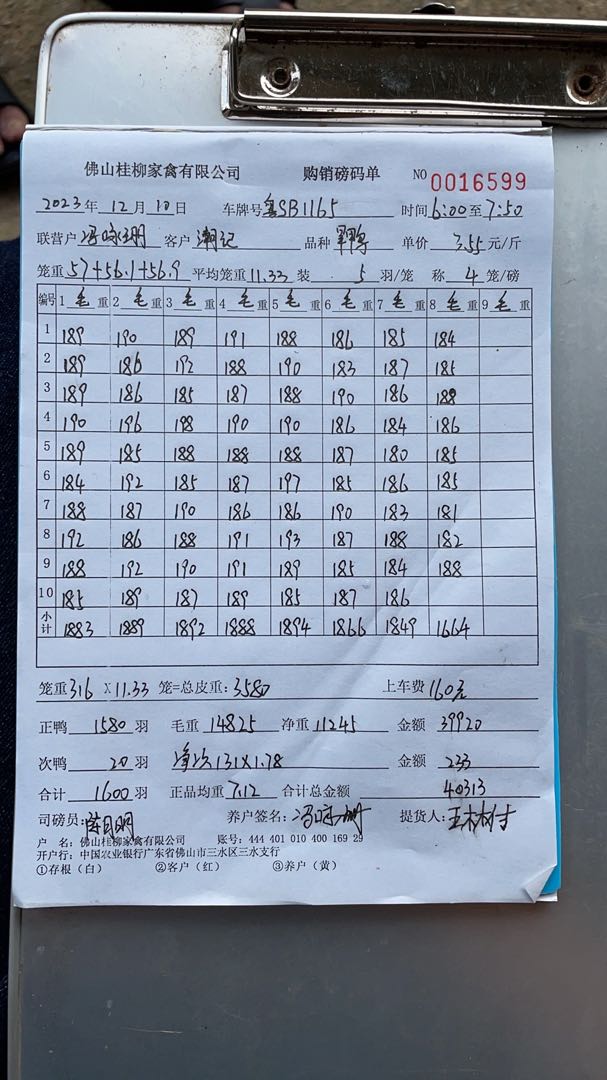 佛山桂柳家禽有限公司 购销磅码单 NO 0016599
2023年 12月 10日 车牌号 粤SB1165 时间 6:00至7:50
联营户 客户 潮记 品种 单价 3.55 元/斤
笼重 57+56.1+56.9 平均笼重 11.33 装 5 羽/笼 称 4 笼/磅
编号 1 毛重 2 毛重 3 毛重 4 毛重 5 毛重 6 毛重 7 毛重 8 毛重 9 毛重
1 189 190 189 191 188 186 185 184
2 189 186 192 188 190 183 187 185
3 189 186 185 187 188 190 186 188
4 190 196 198 190 190 186 184 186
5 189 185 188 188 188 187 180 185
6 184 192 185 187 197 185 186 185
7 188 187 190 186 186 190 183 181
8 192 186 188 191 193 187 188 182
9 188 192 190 191 189 185 184 188
10 185 189 187 189 185 187 186
小计 1883 1889 1892 1888 1894 1866 1849 1664
笼重 316 X 11.33 笼=总皮重: 3580 上车费 160元
正鸭 1580 羽 毛重 14825 净重 11245 金额 39920
次鸭 20 羽 净次131X1.78 金额 233
合计 1600 羽 正品均重 7.12 合计总金额 40313
司磅员: 养户签名: 提货人:
户 名: 佛山桂柳家禽有限公司 账号: 444 401 010 400 169 29
开户行: 中国农业银行广东省佛山市三水区三水支行
①存根（白） ②客户（红） ③养户（黄）